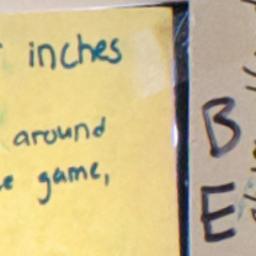 inches
around
game,
B
E